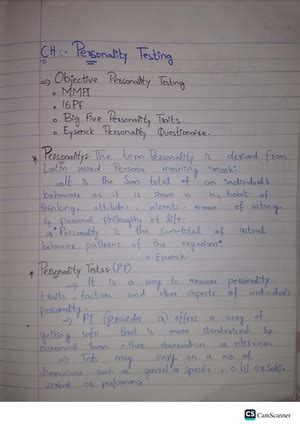 CH :- Personality Testing
⇒ Objective Personality Testing
o MMPI
o 16PF
o Big Five Personality Traits
o Eysenck Personality Questionnaire.
* Personality: The term Personality is derived from
Latin word Persona meaning "mask".
⇒ It is the Sum total of an individual's
behaviour as it is shown in his habit of
thinking, attitudes, interests, manner of acting
& personal philosophy of life.
→ "Personality is the sum-total of actual
behavior patterns of the organism"
~ Eysenck
* Personality Tests:- (PT)
→ It is a way to measure personality
traits, factors and other aspects of individual's
personality.
→ PT (provides a) offers a way of
getting info that is more standardized &
economical than other observation or interviews.
→ Tests may vary on a no of
dimensions such as general or specific,
verbal or performance
CS CamScanner